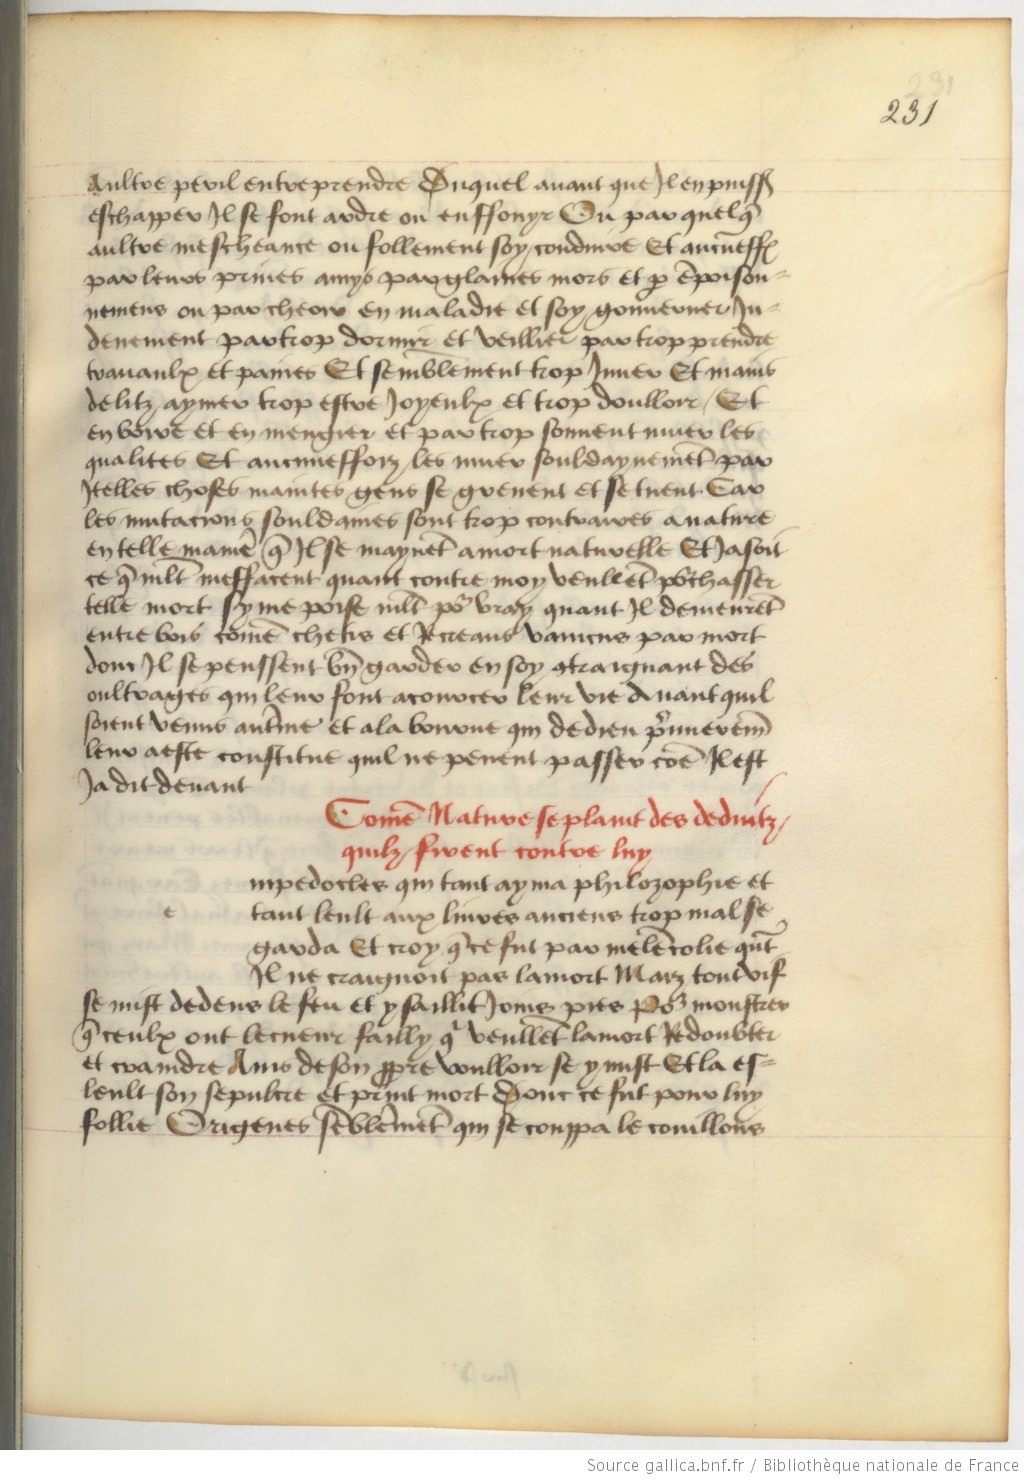 231
Aultre peril entreprendre Duquel avant que Jl en puissẽ
eschapper Jl se font ardre ou enffouyr Ou par quelq̃
aultre mescheance ou follement soy conduire Et aucuneffs̃
par leurs privés amys par glaives mors et p̱ ẽpoison-
nemens ou par cheoir en maladie et soy gouverner Ju-
deuement par trop dormir et veillier par trop prendre
travaulx et paines Et semblement trop Juner Et mains
delitz aymer trop estre Joyeulx et trop doulloir / Et
en boire et en mengier et par trop souvent muer les
qualites Et aucuneffoiz les muer souldaynemẽt par
Jtelles choses maintes gens se grevent et se tuent Car
les mutacions souldaines sont trop contraires a nature
en telle maniẽ q̃ Jl se maynẽt a mort naturelle Et Ja soit
ce q̃ mlt̃ meffacent quant contre moy veullẽt põchasser
telle mort sy me poise mlt̃ põ vray quant Jl demeurẽt
entre vois com̃e chetis et Recreans vaincus par mort
donc Jl se peussent bñ garder en soy 9traignant des
oultrages qui leur font acourcer leur vie Avant quil
soient venus au tr̃me et a la bourne qui de dieu p̃mieremẽ
leur a este constitue quil ne peuent passer cõe Jl est
Ja dit devant
Com̃e Nature se plaint des deduitz
quilz firent contre luy
e
mpedocles qui tant ayma philozophie et
tant leult aux livres anciens trop mal se
garda Et croy q̃ ce fut par melẽcolie qũt
Jl ne craignoit pas la mort Maiz tout vif
se mist dedens le feu et y saillit Joins pies Põ monstrer
q̃ ceulx ont le cueur failly q̃ veullẽt la mort Redoubter
et craindre Ains de son ꝓpre voulloir se y mist Et la es-
leult son sepulcre et print mort Donc ce fut pour luy
follie Origenes sẽblemẽt qui se couppa le couillons
Source gallica.bnf.fr / Bibliothèque nationale de France